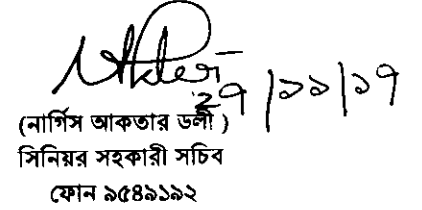 ২৭/১১/১৭
(নার্গিস আকতার ডলী)
সিনিয়র সহকারী সচিব
ফোন ৯৫৪৯১৯২